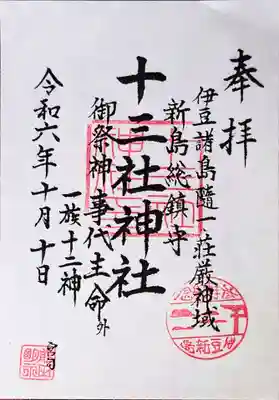 奉拝
伊豆諸島随一荘厳神域
新島総鎮守
十三社神社
御祭神 事代主命外
一族十二神
令和六年十月十日
宮司